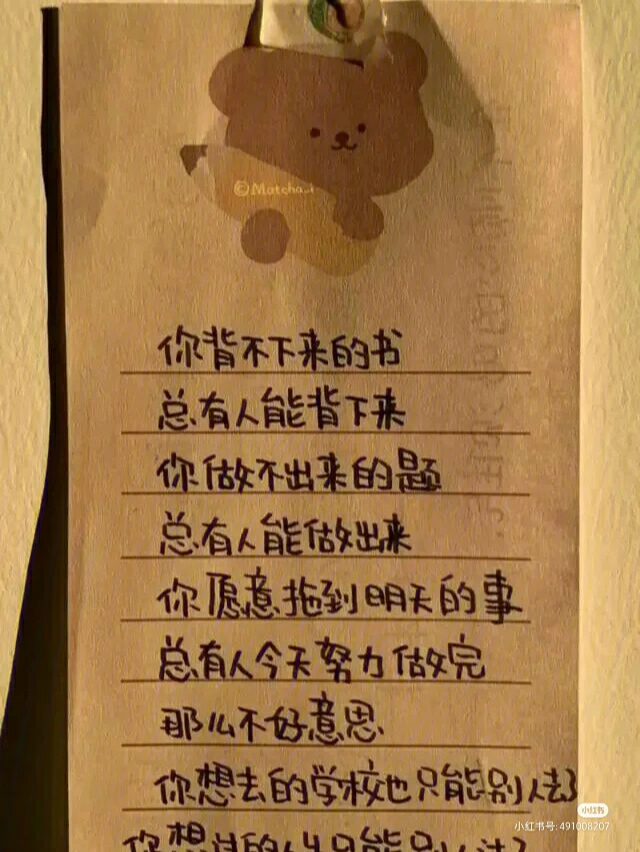 ©Matcha_i
你背不下来的书
总有人能背下来
你做不出来的题
总有人能做出来
你愿意拖到明天的事
总有人今天努力做完
那么不好意思
你想去的学校也只能别人去了
小红书
小红书号: 491008207